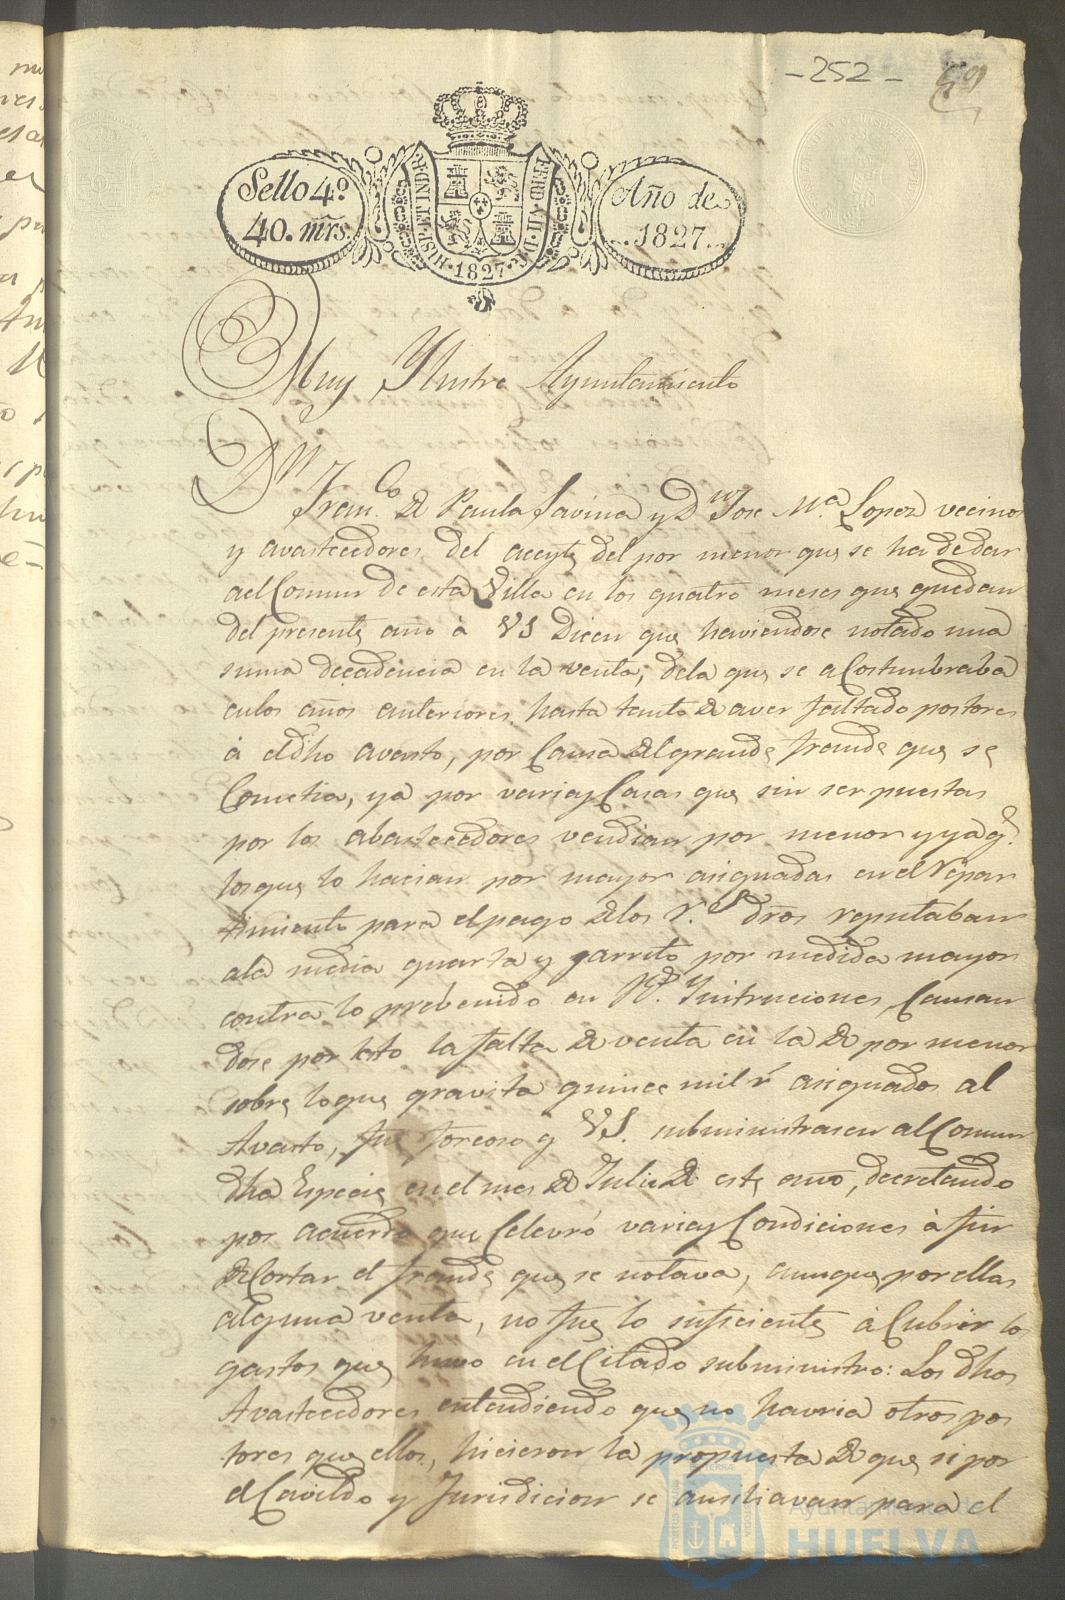 -252-
Sello 4º
40. mrs.
HISP. ET IND. R.
FERD. VII. D. G.
1827
Año de
1827.
Muy Ylustre Ayuntamiento
Dn
Franco. de Paula Savina y Dn Jose Ma. Lopez vecinos
y avasteedores del aceyte del por menor que se ha de dar
ael Comun de esta Villa en los quatro meses que quedan
del presente año à VS Dicen que haviendose notado una
suma decadencia en la venta, dela que se aCostumbraba
enlos años anteriores hasta tanto de aver faltado postores
à eldho avasto, por Causa del grande fraude que se
Cometia, ya por varias Casas que sin ser puestas
por los abasteedores vendian por menor y ya q.
los que lo hacian por mayor asignadas en el repar
timiento para el pago delos rs. dros reputaban
ala media quarta y jarrito por medida mayor
contra lo prebenido en Rs. Ynstruciones Causan
dose por esto la falta de venta en la de por menor
sobre lo que gravita quince mil rs. asignados al
Avasto, fue forcoso q VS. subministrasen al Comun
dha Especie en el mes de Julio de este año, decretando
por acuerdo que Celevró varias Condiciones à fin
de Cortar el fraude que se notava, aunque por ellas
alguna venta, no fue lo suficiente à Cubrir los
gastos que huvo en el Citado subministro: Los dhos
Avasteedores entendiendo que no havria otros pos
tores que ellos, hicieron la propuesta de que si por
el Cavildo y Jurisdicion se ausiliavan para el
Ayuntamiento de
HUELVA